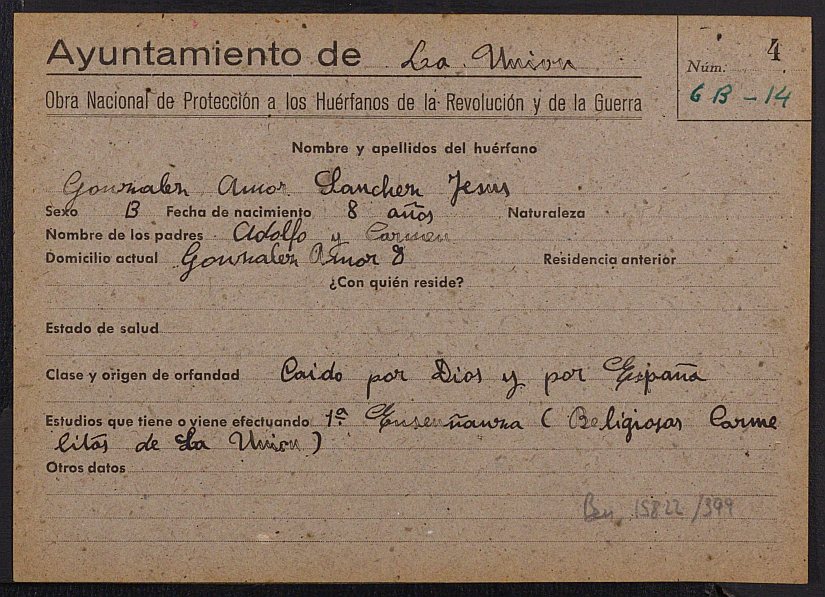 Ayuntamiento de La Union
Núm. 4
6 B - 14
Obra Nacional de Protección a los Huérfanos de la Revolución y de la Guerra
Nombre y apellidos del huérfano
Gonzalez Amor Sanchez Jesus
Sexo B Fecha de nacimiento 8 años Naturaleza
Nombre de los padres Adolfo y Carmen
Domicilio actual Gonzalez Amor 8 Residencia anterior
¿Con quién reside?
Estado de salud
Clase y origen de orfandad Caido por Dios y por España
Estudios que tiene o viene efectuando 1ª Enseñanza (Religiosas Carme
litas de La Union)
Otros datos
15822/399